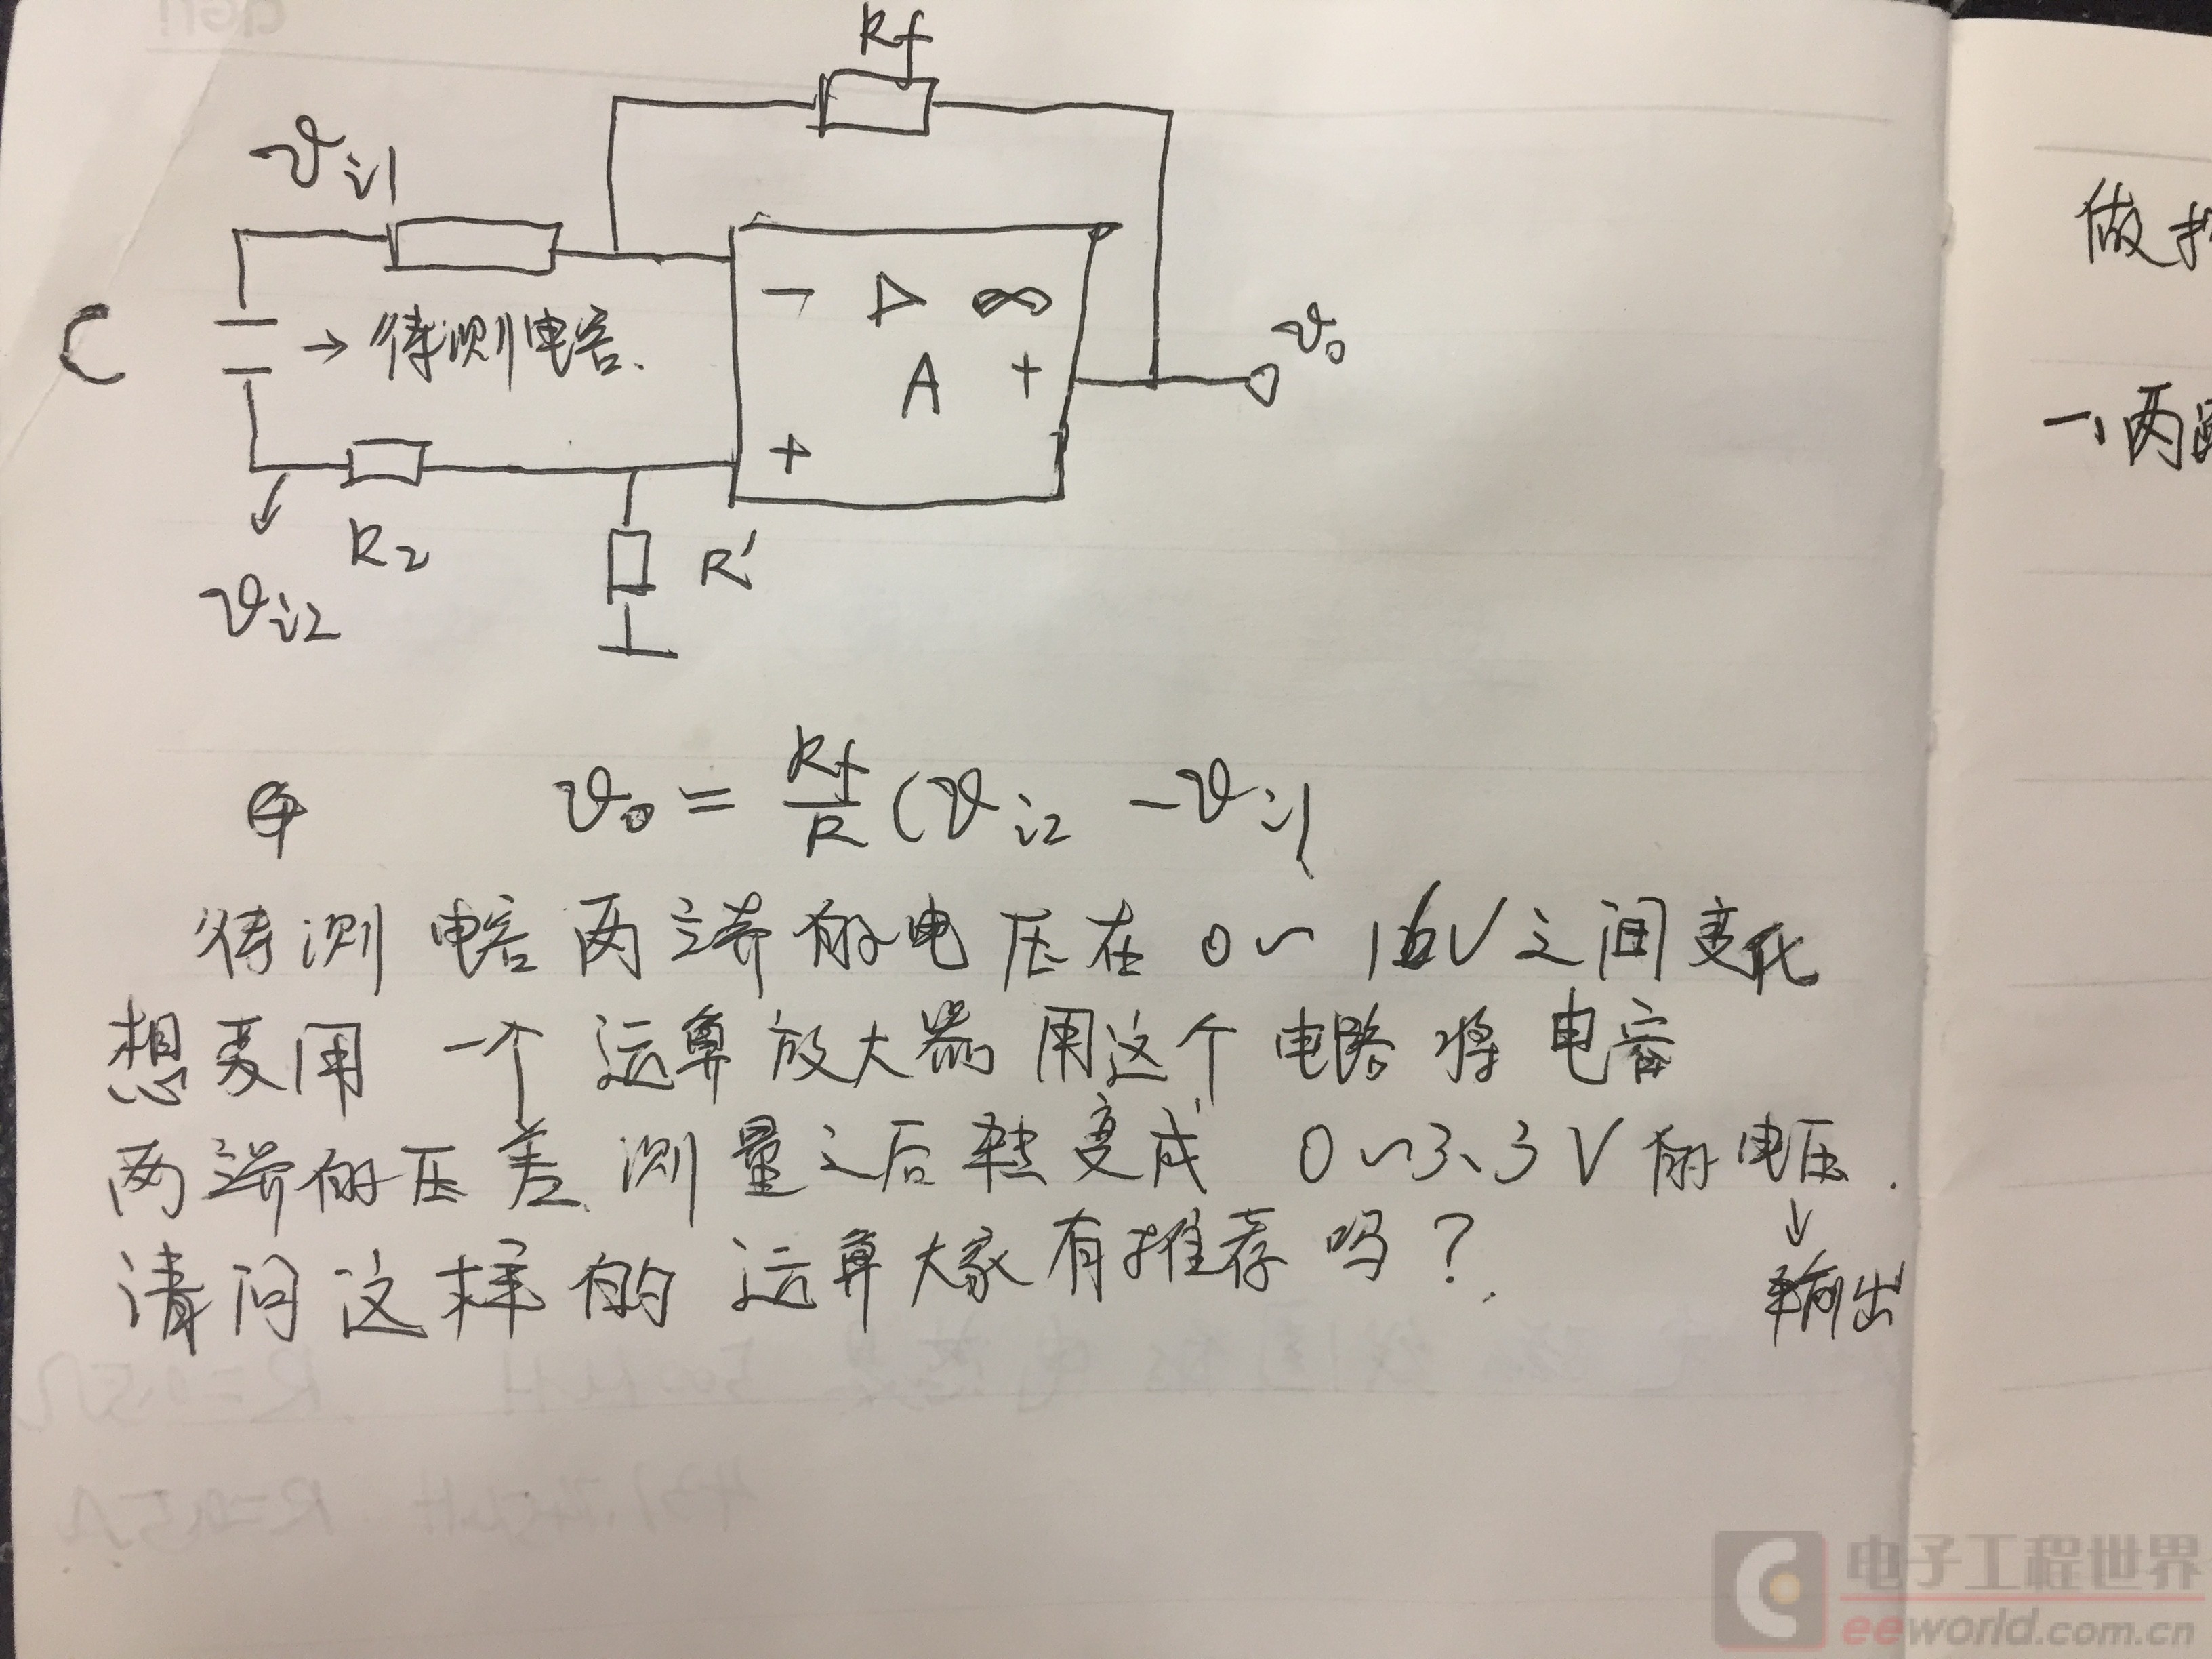 Rf
vi1
C
→待测电容.
- ▷ ∞
A +
+
vo
R2
R'
vi2
vo = Rf/R (vi2 - vi1
待测电容两端的电压在0~16V之间变化
想要用一个运算放大器用这个电路将电容
两端的压差测量之后转变成0~3.3V的电压.
↓
输出
请问这样的运算大家有推荐吗?
做
一、两
R=0.5Ω
电子工程世界
eeworld.com.cn